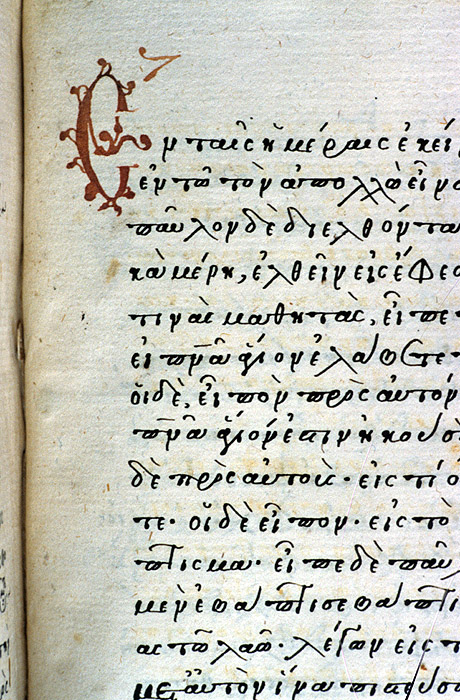 Ἐν ταῖς ἡμέραις ἐκεί
ἐν τῶ τὸν ἀπολλὼ εἶνα
παῦλον δὲ διελθόντα
κὰ μέρη, ἐλθεῖν εἰς ἔφεσ
τινὰς μαθητὰς, εἶπε
εἰ πνᾶ ἅγιον ἐλάβετε
οἱ δὲ, εἶπον πρὸς αὐτόν
πνᾶ ἅγιόν ἐστιν ἠκούσ
δὲ πρὸς αὐτούς· εἰς τί ο
τε· οἱ δὲ εἶπον· εἰς τὸ
πτισμα· εἶπε δὲ παῦ
μὲν ἐβάπτισε βάπτι
ας τῶ λαῶ· λέγων εἰς τ
με αὐτὸν ἵνα πιστεύσ